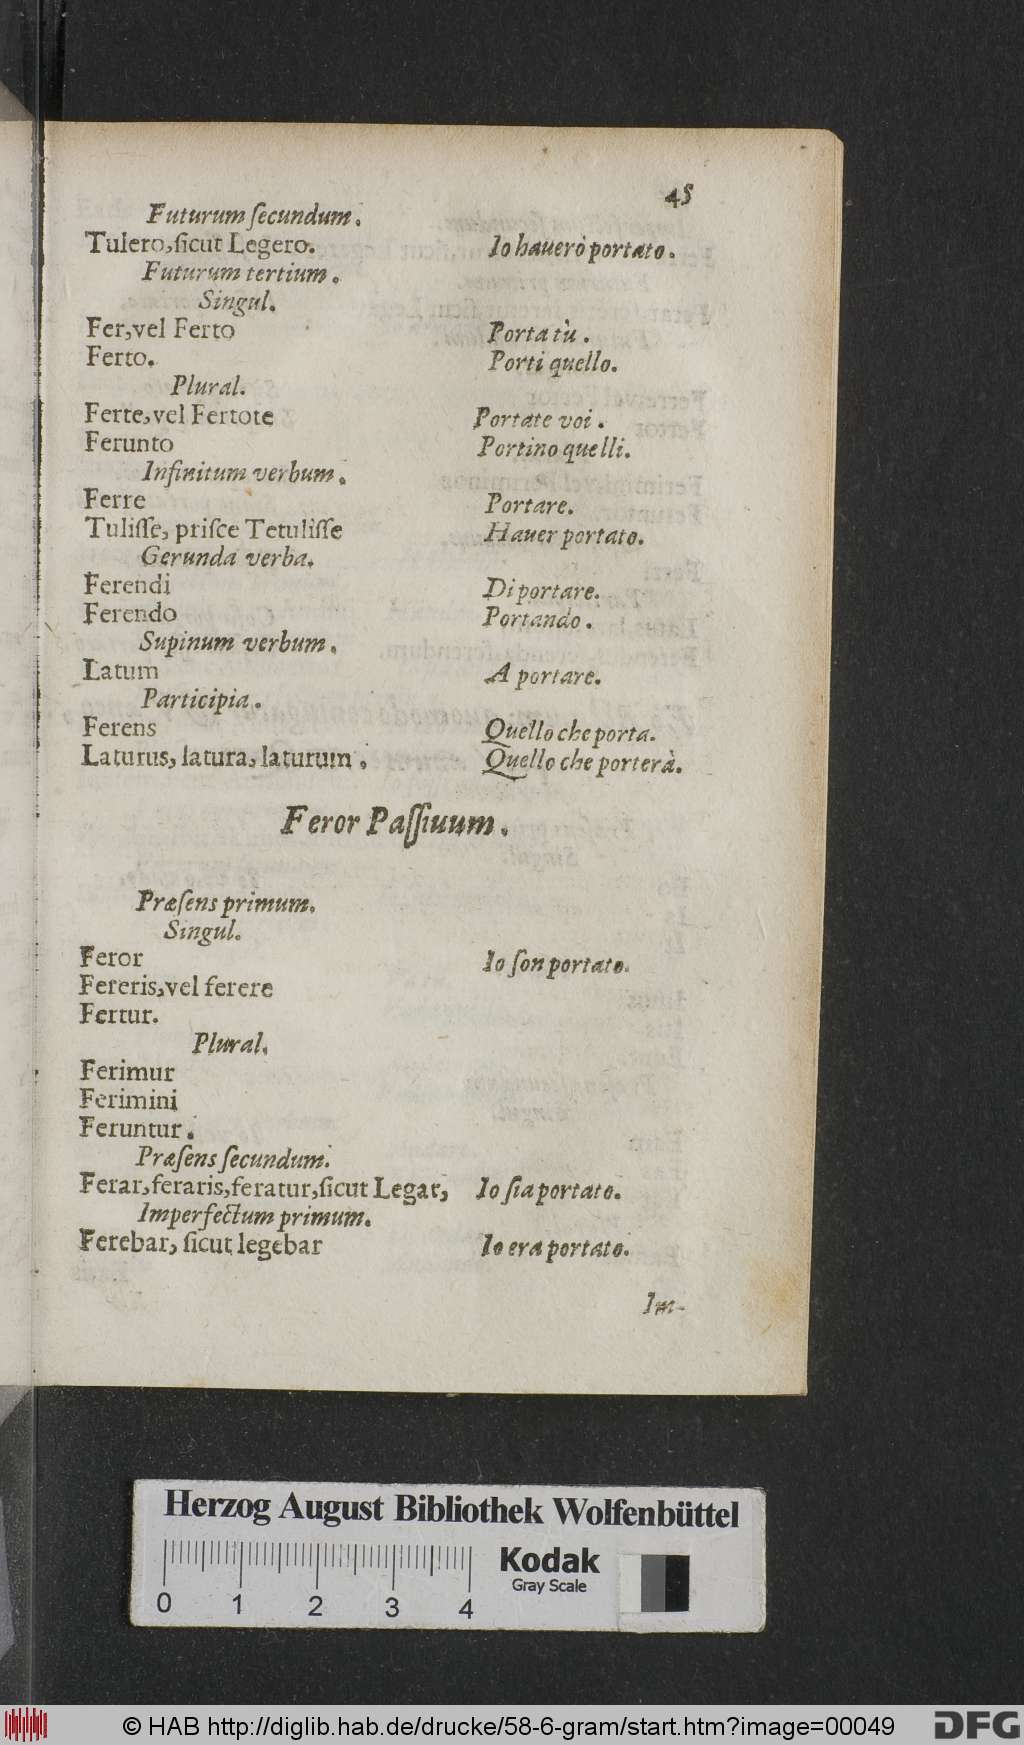 45
Futurum ſecundum.
Tulero,ſicut Legero. Io hauerò portato.
Futurum tertium.
Singul.
Fer,vel Ferto Porta tù.
Ferto. Porti quello.
Plural.
Ferte,vel Fertote Portate voi.
Ferunto Portino quelli.
Infinitum verbum.
Ferre Portare.
Tuliſſe, priſce Tetuliſſe Hauer portato.
Gerunda verba.
Ferendi Di portare.
Ferendo Portando.
Supinum verbum.
Latum A portare.
Participia.
Ferens Quello che porta.
Laturus, latura, laturum. Quello che porterà.
Feror Paſſiuum.
Præſens primum.
Singul.
Feror Io ſon portato.
Fereris,vel ferere
Fertur.
Plural.
Ferimur
Ferimini
Feruntur.
Præſens ſecundum.
Ferar,feraris,feratur,ſicut Legar, Io ſia portato.
Imperfectum primum.
Ferebar, ſicut legebar Io era portato.
Im-
Herzog August Bibliothek Wolfenbüttel
Kodak
Gray Scale
0 1 2 3 4
© HAB http://diglib.hab.de/drucke/58-6-gram/start.htm?image=00049
DFG